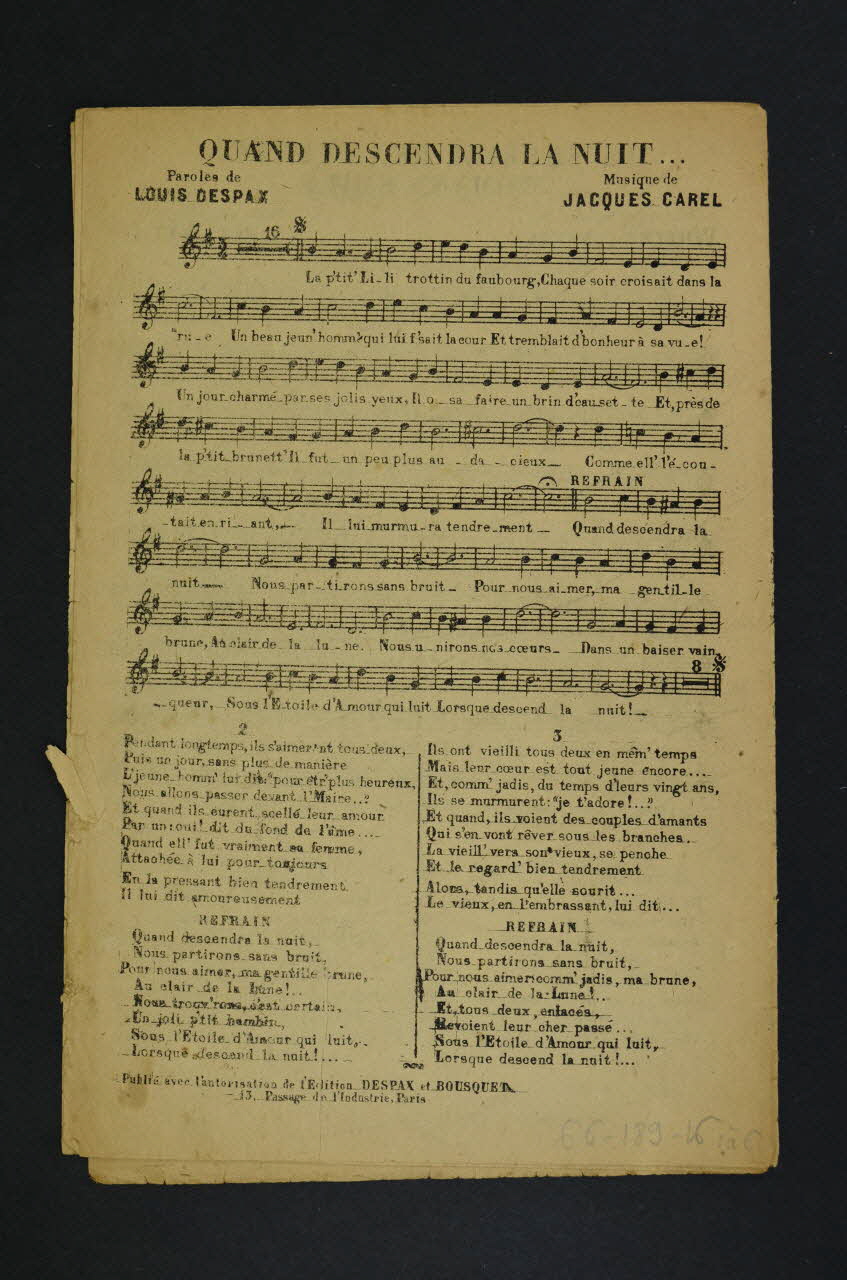 QUAND DESCENDRA LA NUIT...
Paroles de
LOUIS DESPAX
Musique de
JACQUES CAREL
16
La p'tit' Li-li trottin du faubourg, Chaque soir croisait dans la
ru-e Un beau jeun' homm' qui lui f'sait la cour Et tremblait d'bonheur à sa vu-e!
Un jour charmé par ses jolis yeux, Il o-sa faire un brin d'causet-te Et, près de
la p'tit' brunett' Il fut un peu plus au-da-cieux Comme ell' l'é-cou-
-tait en ri-ant, Il lui murmu-ra tendre-ment
REFRAIN
Quand descendra la
nuit Nous par-ti-rons sans bruit Pour nous ai-mer, ma gen-til-le
brune, Au clair de la lu-ne. Nous u-nirons nos cœurs Dans un baiser vain-
8
-queur, Sous l'Etoile d'Amour qui luit Lorsque descend la nuit!
2
Pendant longtemps, ils s'aimer'nt tous deux,
Puis un jour, sans plus de manière
L'jeune homm' lui dit: "pour êtr' plus heureux,
Nous allons passer devant l'Maire.."
Et quand ils eurent scellé leur amour
Par un: oui! dit du fond de l'âme....
Quand ell' fut vraiment sa femme,
Attachée à lui pour toujours
En la pressant bien tendrement
Il lui dit amoureusement
REFRAIN
Quand descendra la nuit,
Nous partirons sans bruit,
Pour nous aimer, ma gentille brune,
Au clair de la Lune!..
Nous trouv'rons, c'est certain,
Un joli p'tit bambin,
Sous l'Etoile d'Amour qui luit,
Lorsque descend la nuit!...
3
Ils ont vieilli tous deux en mêm' temps
Mais leur cœur est tout jeune encore....
Et, comm' jadis, du temps d'leurs vingt ans,
Ils se murmurent: "je t'adore!.."
Et quand, ils voient des couples d'amants
Qui s'en vont rêver sous les branches.
La vieill' vers son vieux, se penche
Et le regard' bien tendrement
Alors, tandis qu'elle sourit...
Le vieux, en l'embrassant, lui dit...
REFRAIN
Quand descendra la nuit,
Nous partirons sans bruit,
Pour nous aimer comm' jadis, ma brune,
Au clair de la Lune!..
Et, tous deux, enlacés,
Revoient leur cher passé...
Sous l'Etoile d'Amour qui luit,
Lorsque descend la nuit!...
Publié avec l'autorisation de l'Edition DESPAX et BOUSQUET
13, Passage de l'Industrie, Paris